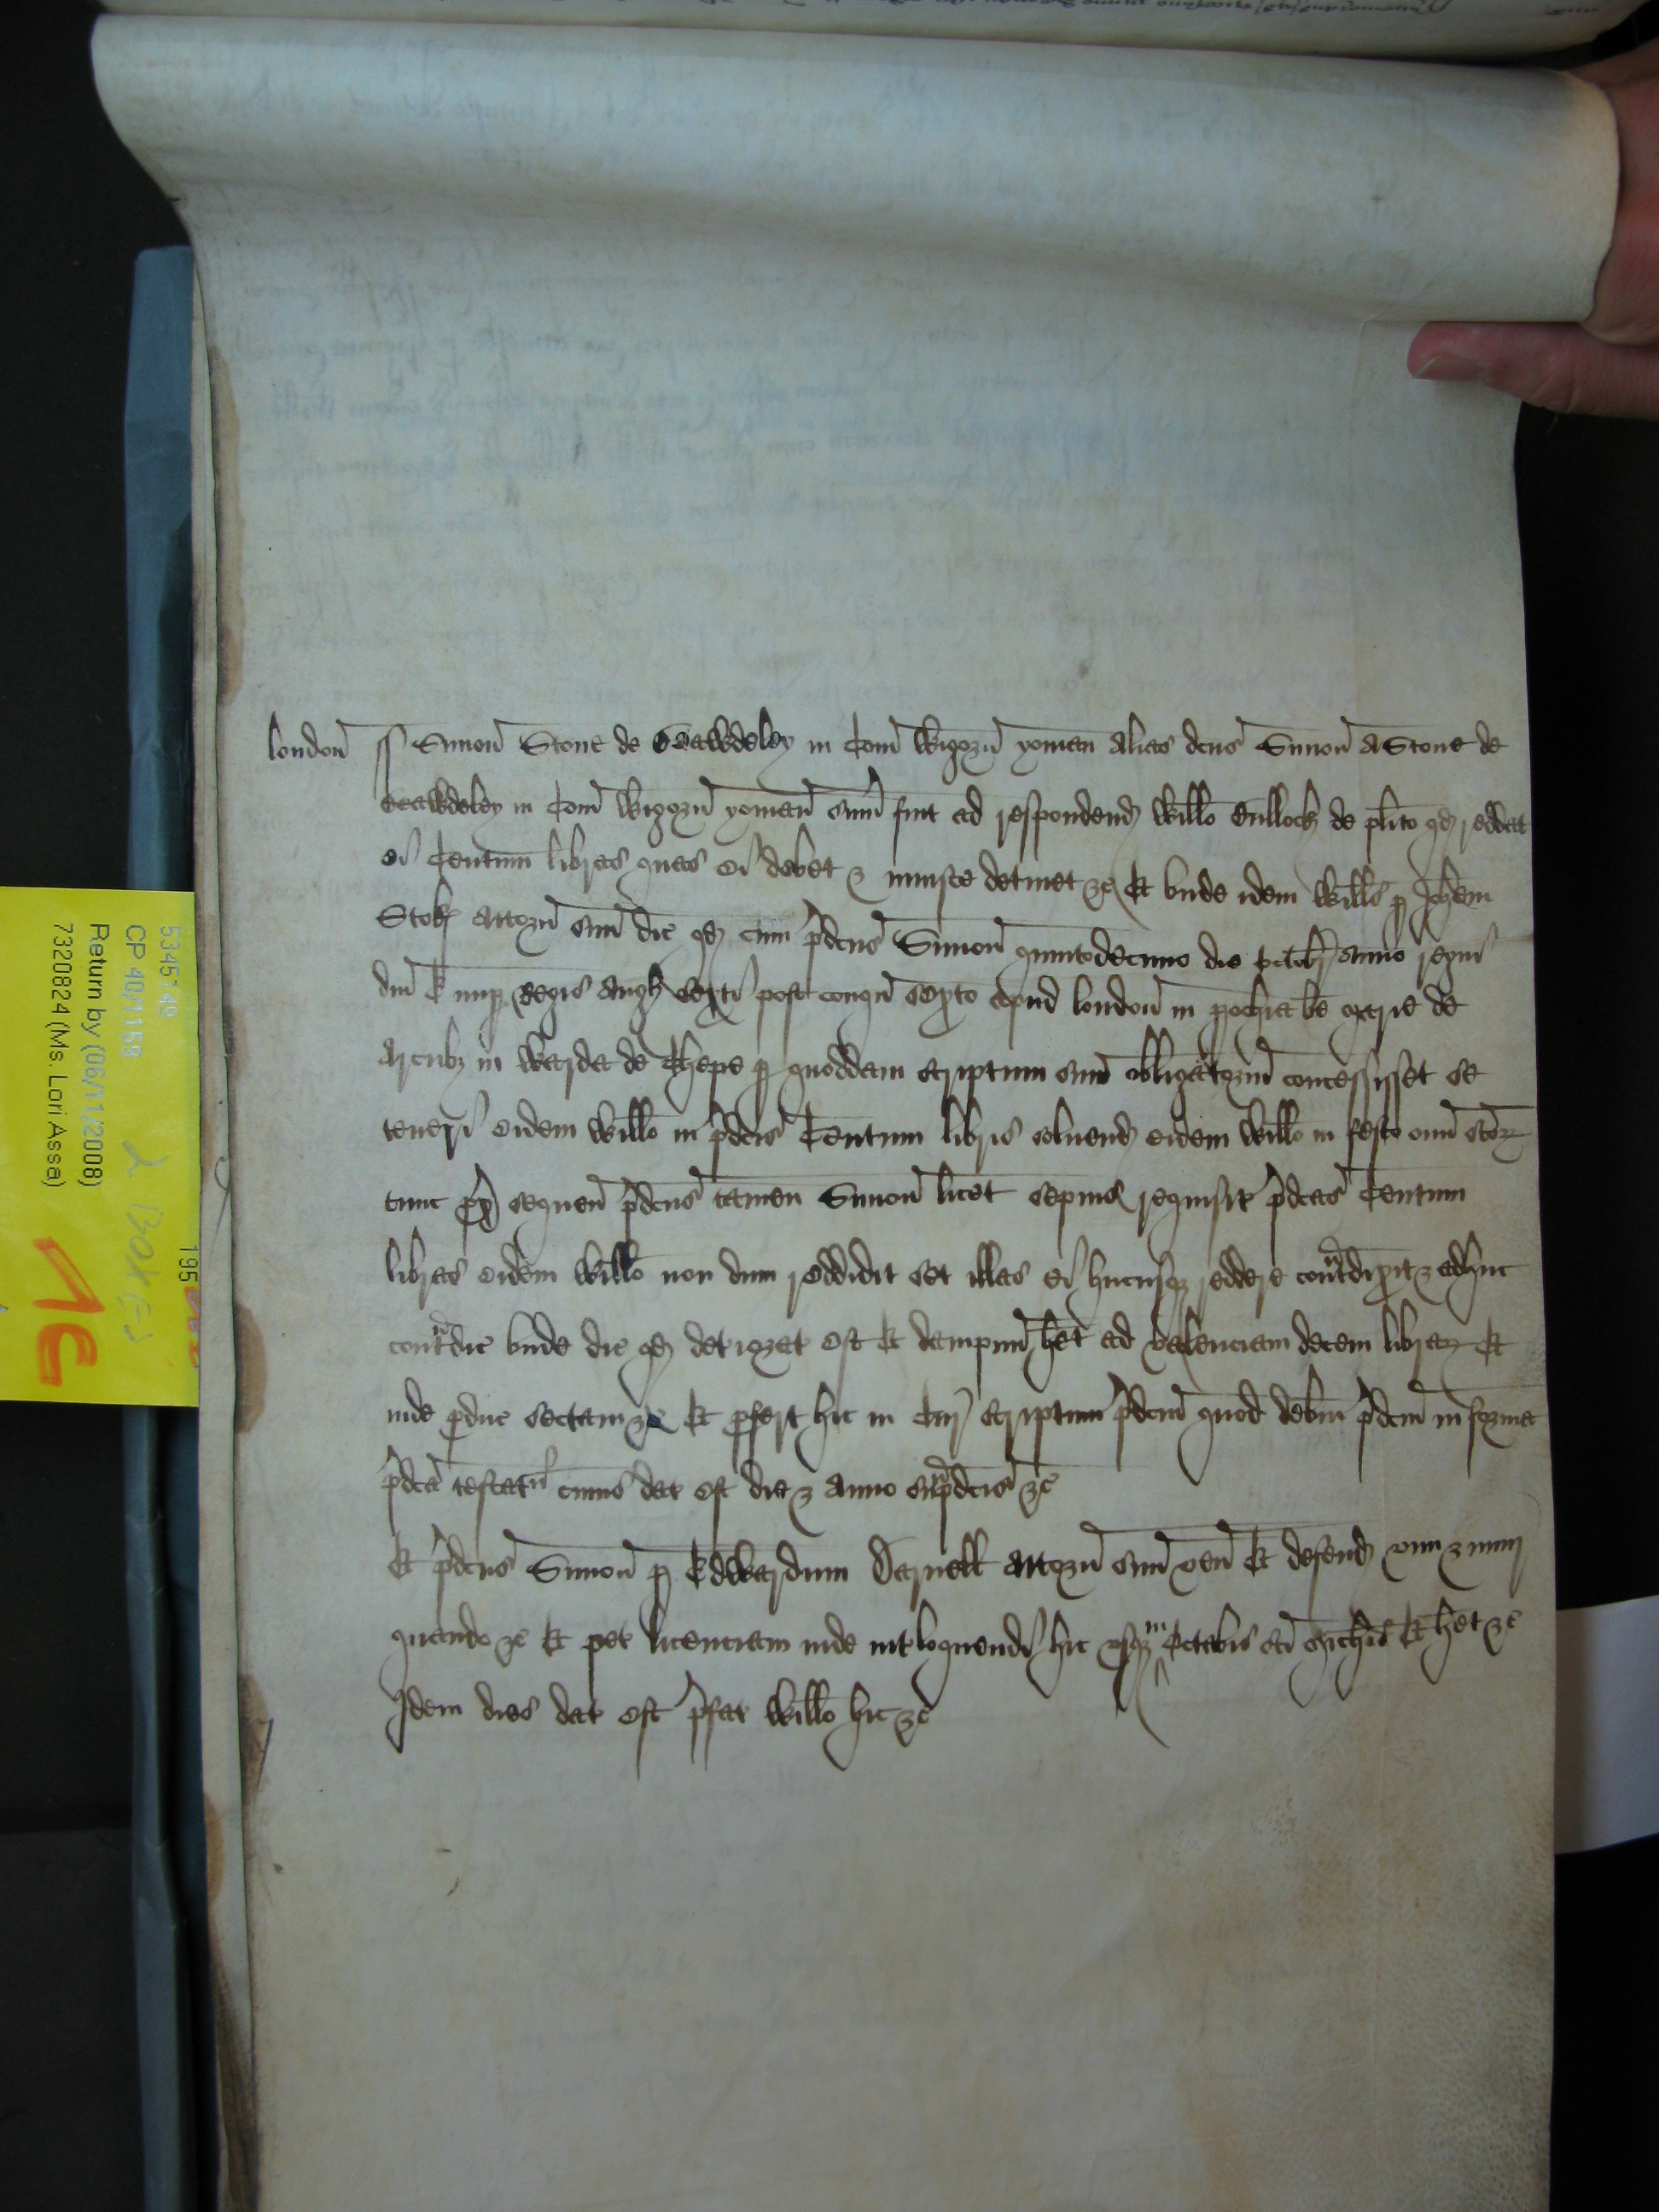 london̄ ss Simon̄ Stone de Beawdeley in Com̄ Wigorn̄ yoman alias dcūs Simon̄ A Stone de
Beawdeley in Com̄ Wigorn̄ yoman̄ sum̄ fuit ad respondend̄ Will̄o Bullock de pl̄ito qd̄ reddat
ei Centum libras quas ei debet & iniuste detinet &c̄ Et vnde idem Will̄s p Joh̄em
Stok attorn̄ suū dic̄ qd̄ cum p̄dcūs Simon̄ quintodecimo die Octobr̄ anno regni
dn̄i E nup Regis Angl̄ sexti post conqm̄ sexto apud london̄ in pochia bē Marie de
Arcubȝ in Warda de Chepe p quoddam scriptum suū obligatoriū concessisset se
teneri eidem Will̄o in p̄dcīs Centum libris soluend̄ eidem Will̄o in festo om̄i scōꝝ
tunc px̄ sequen̄ p̄dcūs tamen Simon̄ licet sepius requisit p̄dcās Centum
libras eidem Will̄o non dum reddidit set illas ei hucusqȝ reddere contͣdixit & adhuc
contͣdic̄ vnde dic̄ qd̄ deteriorat est Et dampnū h̄et ad valenciam decem libraꝝ Et
inde pduc̄ sectam &c̄ Et pfert hic in Cur̄ scriptum p̄dcm̄ quod debm̄ p̄dcm̄ in forma
p̄dcā testatr̄ cuius dat est die & anno supͣdcīs &c̄
Et p̄dcūs Simon̄ p Edwardum Darnell attorn̄ suū ven̄ Et defend̄ vim & iniur̄
quando &c̄ Et pet licenciam inde int̄loquendi hic vsqȝ in Octabis scī Mich̄is Et h̄et &c̄
Idem dies dat est p̄fat Will̄o hic &c̄
5345149
CP 40/1159
Return by (06/11/2008)
7320824 (Ms. Lori Assa)
195